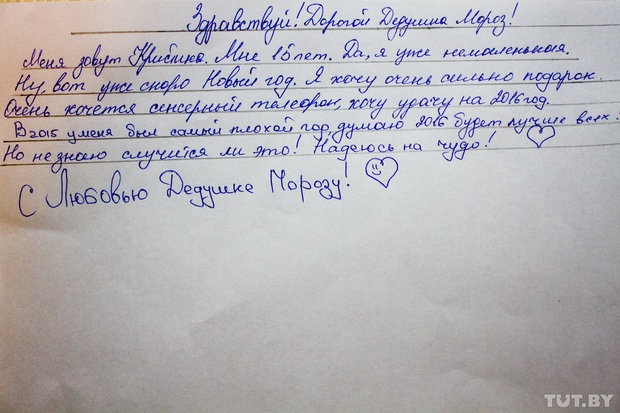 Здравствуй! Дорогой Дедушка Мороз!
Меня зовут Кристина. Мне 15 лет. Да, я уже немаленькая.
Ну, вот уже скоро Новый год. Я хочу очень сильно подарок.
Очень хочется сенсерный телефон, хочу удачу на 2016 год.
В 2015 у меня был самый плохой год, думаю 2016 будет лучше всех.
Но не знаю случится ли это! Надеюсь на чудо!
С Любовью Дедушке Морозу!
TUT.BY